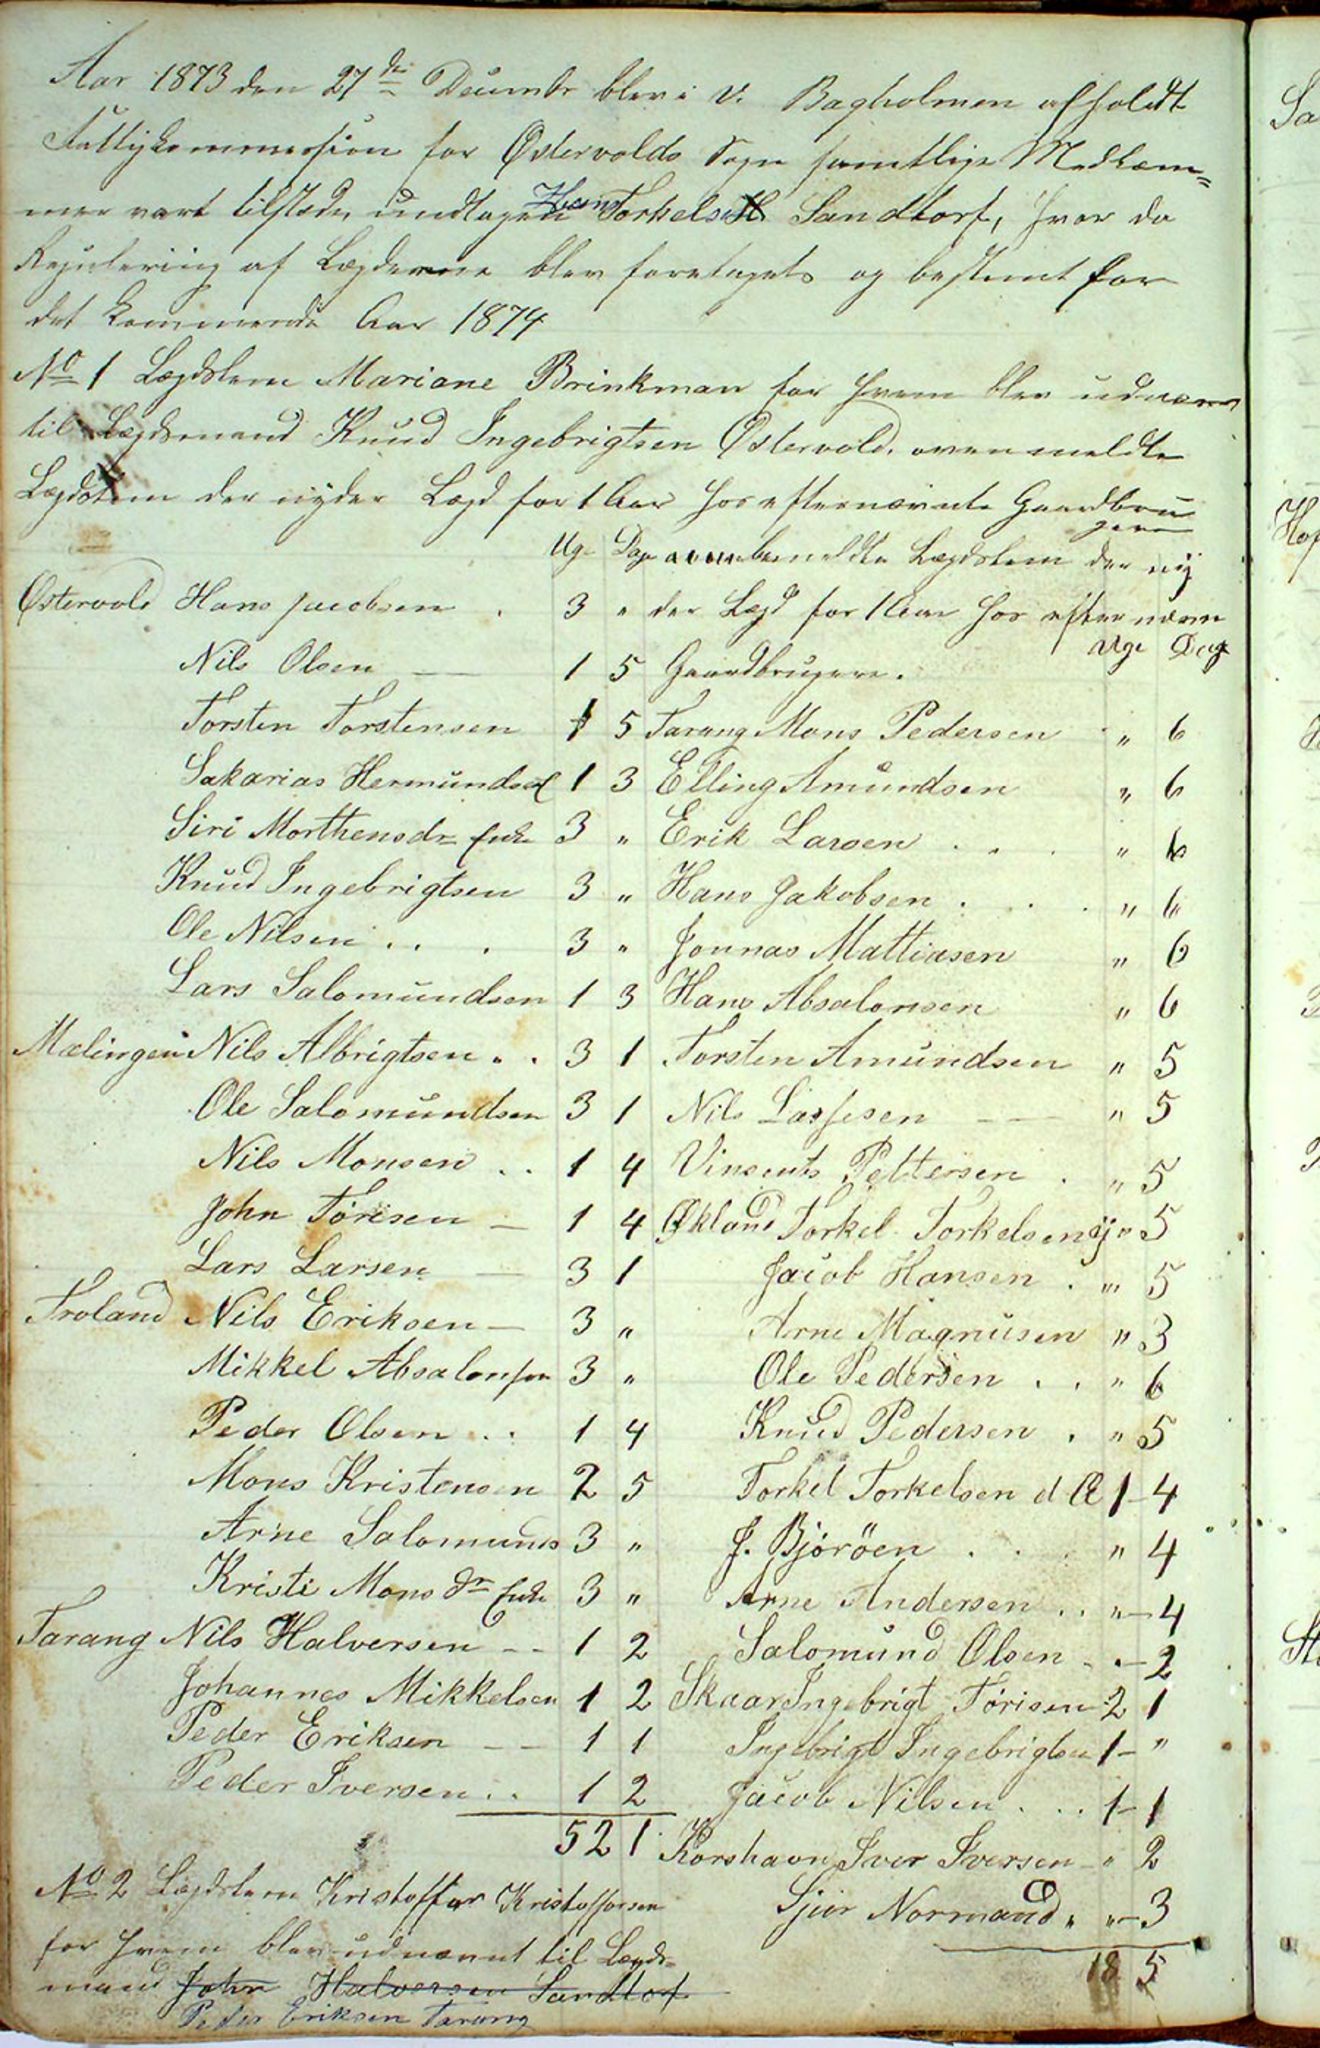 Aar 1873 den 27de December blev i V. Bagholmen afholdt
Fattigkommission for Østervolds Sogn samtlige Medlem=
mer vart tilstede undtagen Hans Torkelsen Sandtorf, hvor da
Regulering af Lægderne blev foretaget og bestemt for
det kommende Aar 1874
No 1 Lægdslem Mariane Brinkman for hvem blev udnævnt
til Lægdsmand Knud Ingebrigtsen Østervold. ovenmeldte
Lægdslem der nyder Lægd for 1 Aar hos efternævnte Gaardbru
gere
Uge Dage
Østervold Hans Jacobsen . 3 "
Nils Olsen — 1 5
Torsten Torstensen 1 5
Sakarias Hermundsen 1 3
Siri Morthensdr Enke 3 "
Knud Ingebrigtsen 3 "
Ole Nilsen . . . 3 "
Lars Salomundsen 1 3
Mælingen Nils Albrigtsen . . 3 1
Ole Salomundsen 3 1
Nils Monsen . . 1 4
John Tørisen — 1 4
Lars Larsen — 3 1
Troland Nils Eriksen — 3 "
Mikkel Absalonsen 3 "
Peder Olsen . . 1 4
Mons Kristensen 2 5
Arne Salomunds 3 "
Kristi Mons dr Enke 3 "
Tarang Nils Halversen -- 1 2
Johannes Mikkelsen 1 2
Peder Eriksen — — 1 1
Peder Iversen . . 1 2
52 1
No 2 Lægdslem Kristoffer Kristoffersen
for hvem blev udnævnt til Lægds=
mand John Halversen Sandtorf
Peder Eriksen Tarang
ovenbemeldte Lægdslem der ny
der Lægd for 1 Aar hos efternævn
Uge Dag
Gaardbrugere.
Tarang Mons Pedersen " 6
Elling Amundsen " 6
Erik Larsen . . . " 6
Hans Jakobsen . . . " 6
Jonnas Mattiasen " 6
Hans Absalonsen " 6
Torsten Amundsen " 5
Nils Lassesen — — " 5
Vinsents Pettersen . " 5
Økland Torkel Torkelsen yj " 5
Jacob Hansen . " 5
Arne Magnusen " 3
Ole Pedersen . . " 6
Knud Pedersen . " 5
Torkel Torkelsen d Æ 1 - 4
J. Bjørøen . . . " 4
Arne Andersen . . " - 4
Salomund Olsen - " - 2
Skaar Ingebrigt Tørisen 2 1
Ingebrigt Ingebrigtsen 1 - "
Jacob Nilsen . . . 1 - 1
Korshavn Iver Iversen - " 2
Sjur Normand " " - 3
18 5
Sa
Hop